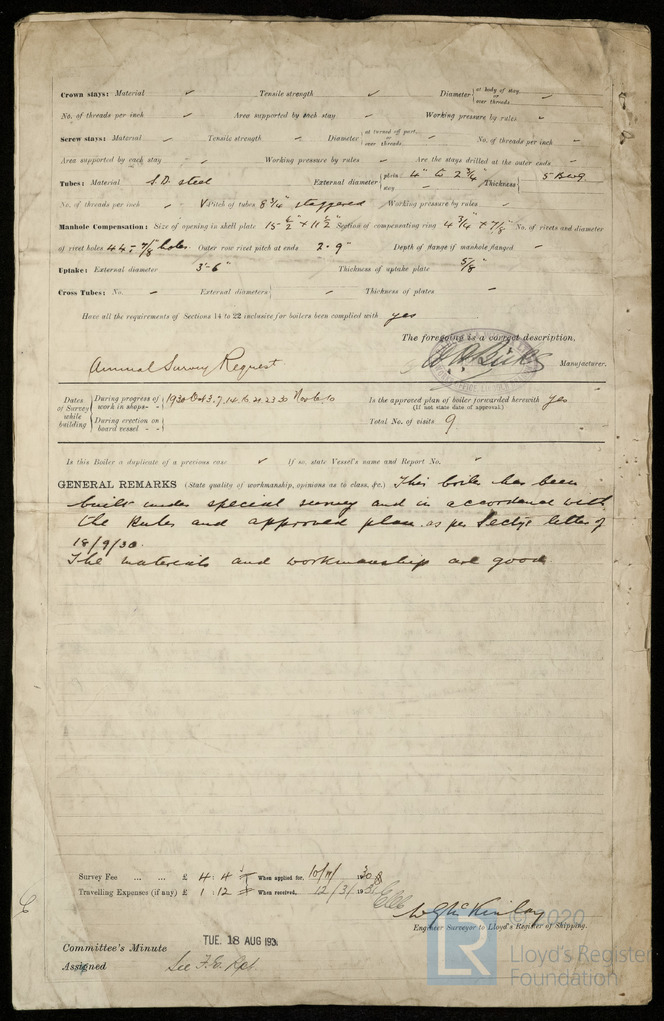 Crown stays: Material ✓ Tensile strength ✓ Diameter { at body of stay or over threads ✓
No. of threads per inch ✓ Area supported by each stay ✓ Working pressure by rules ✓
Screw stays: Material ✓ Tensile strength ✓ Diameter { at turned off part, or over threads ✓ No. of threads per inch ✓
Area supported by each stay ✓ Working pressure by rules ✓ Are the stays drilled at the outer ends ✓
Tubes: Material S.D. steel External diameter { plain 4" to 2 3/4" stay ✓ Thickness { 5 BWG
No. of threads per inch ✓ Pitch of tubes 8 3/4" staggered Working pressure by rules ✓
Manhole Compensation: Size of opening in shell plate 15 1/2" + 11 1/2" Section of compensating ring 4 3/4 + 7/8" No. of rivets and diameter
of rivet holes 44 - 7/8" holes. Outer row rivet pitch at ends 2.9" Depth of flange if manhole flanged ✓
Uptake: External diameter 3'-6" Thickness of uptake plate 5/8"
Cross Tubes: No. ✓ External diameters { ✓ Thickness of plates ✓
Have all the requirements of Sections 14 to 22 inclusive for boilers been complied with yes
The foregoing is a correct description,
Manufacturer.
Annual Survey Request
Dates of Survey while building { During progress of work in shops - - 1930 Oct 3. 7. 14. 16. 21. 23. 30 Nov 6. 10
During erection on board vessel - -
Is the approved plan of boiler forwarded herewith yes
(If not state date of approval.)
Total No. of visits 9
Is this Boiler a duplicate of a previous case ✓ If so, state Vessel's name and Report No. ✓
GENERAL REMARKS (State quality of workmanship, opinions as to class, &c.) This boiler has been
built under special survey and in accordance with
the Rules and approved plan as per Sectys letter of
18/9/30.
The materials and workmanship are good.
Survey Fee ... ... £ 4 : 4 When applied for, 10/11/1930
Travelling Expenses (if any) £ 1 : 12 When received, 12/3/1931
W G McKinlay
Engineer Surveyor to Lloyd's Register of Shipping.
Committee's Minute TUE. 18 AUG 193
Assigned See F.E. Rpt.
© 2020
LR Lloyd's Register
Foundation